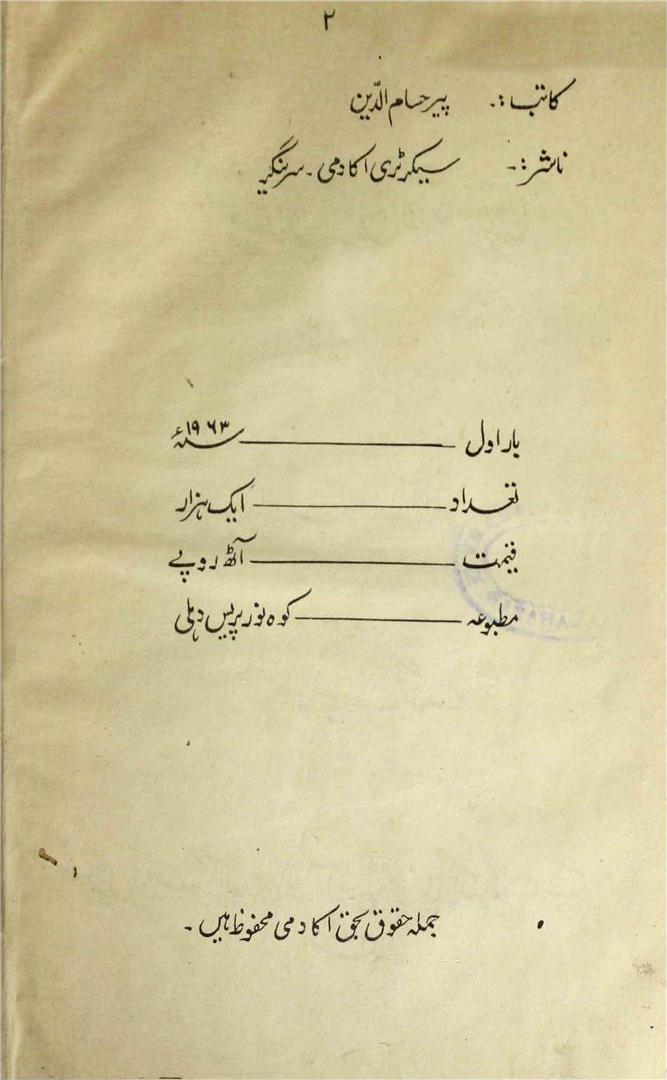 ۲
کاتب :۔ پیر حسام الدّین
ناشر :۔ سیکرٹری اکادمی ۔ سرینگر
بار اول ــــــــــ ۱۹۶۳ء
تعداد ــــــــــ ایک ہزار
قیمت ــــــــــ آٹھ روپے
مطبوعہ ــــــــــ کوہ نور پریس دہلی
جملہ حقوق بحق اکادمی محفوظ ہیں ۔